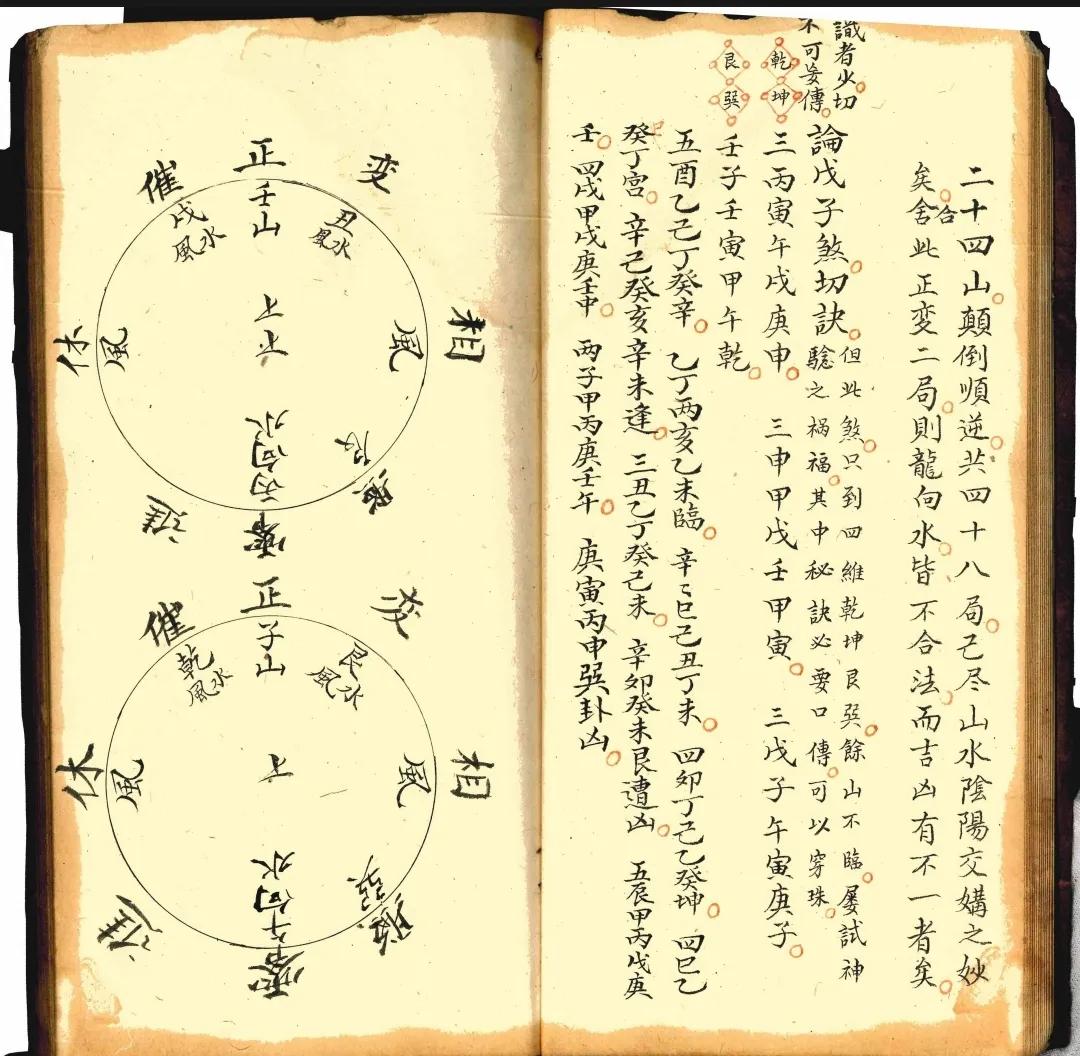 二十四山顛倒順逆共四十八局已尽山水陰陽交媾之妙
矣舍合此正变二局則龍向水皆不合法而吉凶有不一者矣
識者少切
不可妄傳
論戊子煞切訣
但此煞只到四維乾坤艮巽餘山不臨屢試神
驗之禍福其中秘訣必要口傳可以穿珠
乾
坤
三丙寅午戌庚申 三申甲戊壬甲寅 三戊子午寅庚子
艮
巽
壬子壬寅甲午乾
五酉乙己丁癸辛 乙丁丙亥乙未臨 辛〻巳己丑丁未 四卯丁己乙癸坤 四巳乙
癸丁宮 辛己癸亥辛未逢 三丑乙丁癸己未 辛卯癸未艮遭凶 五辰甲丙戊庚
壬 四戌甲戌庚壬申 丙子甲丙庚壬午 庚寅丙申巽卦凶
变
正
催
壬山
丑水風
戌水風
相
風
休
風
丙向水
進
变
正
催
子山
艮水風
乾水風
相
風
休
風
午向水
進